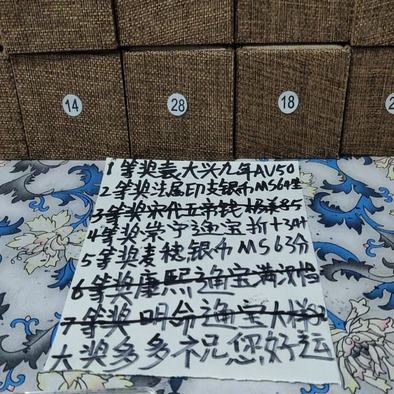 14
28
18
2
1等奖袁大头九年AU50
2等奖法属印支银币MS64坐
3等奖宋代五帝钱极美85
4等奖崇宁通宝折十3种
5等奖麦穗银币MS63分
6等奖康熙通宝满汉
7等奖明命通宝大样
大奖多多祝您好运